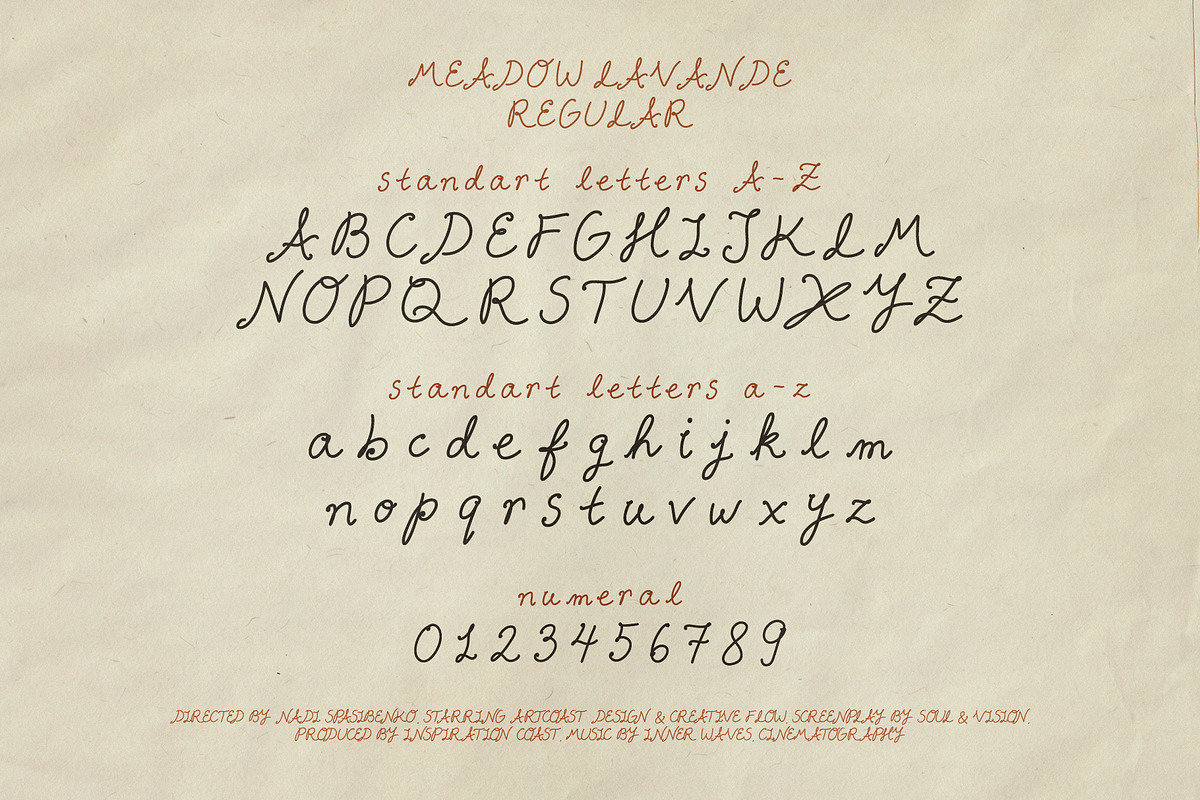 MEADOW LAVANDE
REGULAR
standart letters A-Z
ABCDEFGHIJKLM
NOPQRSTUVWXYZ
standart letters a-z
abcdefghijklm
nopqrstuvwxyz
numeral
0123456789
DIRECTED BY NADI SPASIBENKO, STARRING ARTCOAST DESIGN & CREATIVE FLOW, SCREENPLAY BY SOUL & VISION,
PRODUCED BY INSPIRATION COAST, MUSIC BY INNER WAVES, CINEMATOGRAPHY